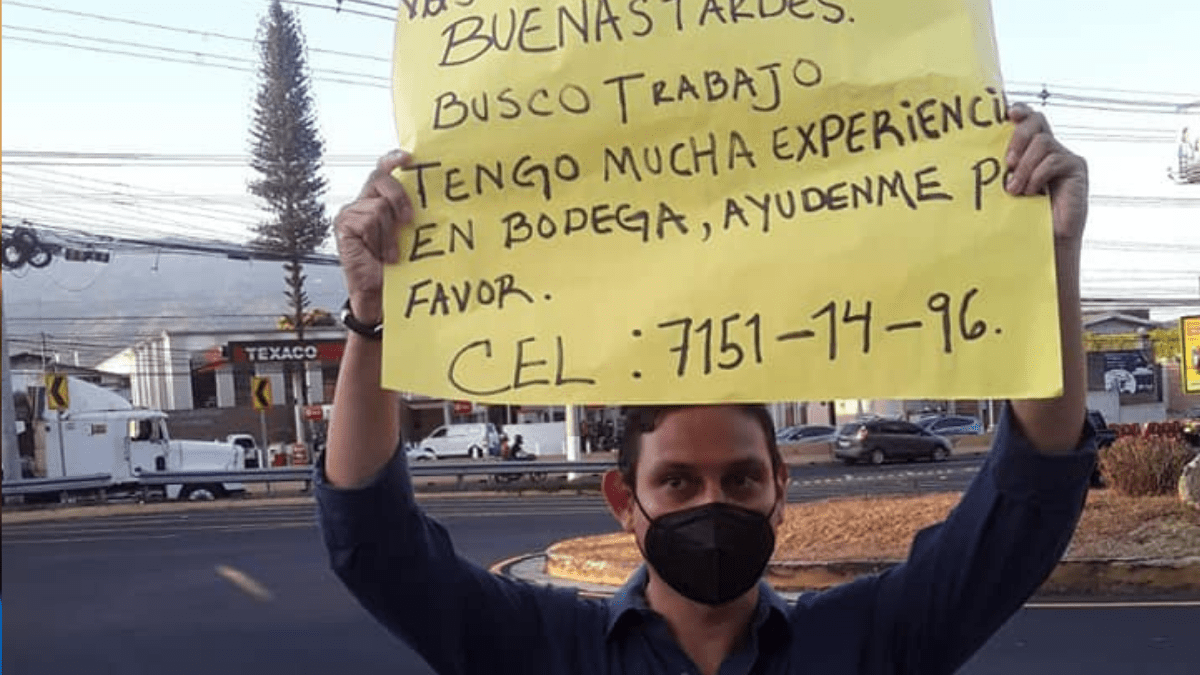 BUENAS TARDES.
BUSCO TRABAJO
TENGO MUCHA EXPERIENCI
EN BODEGA, AYUDENME PO
FAVOR.
CEL : 7151-14-96.
TEXACO